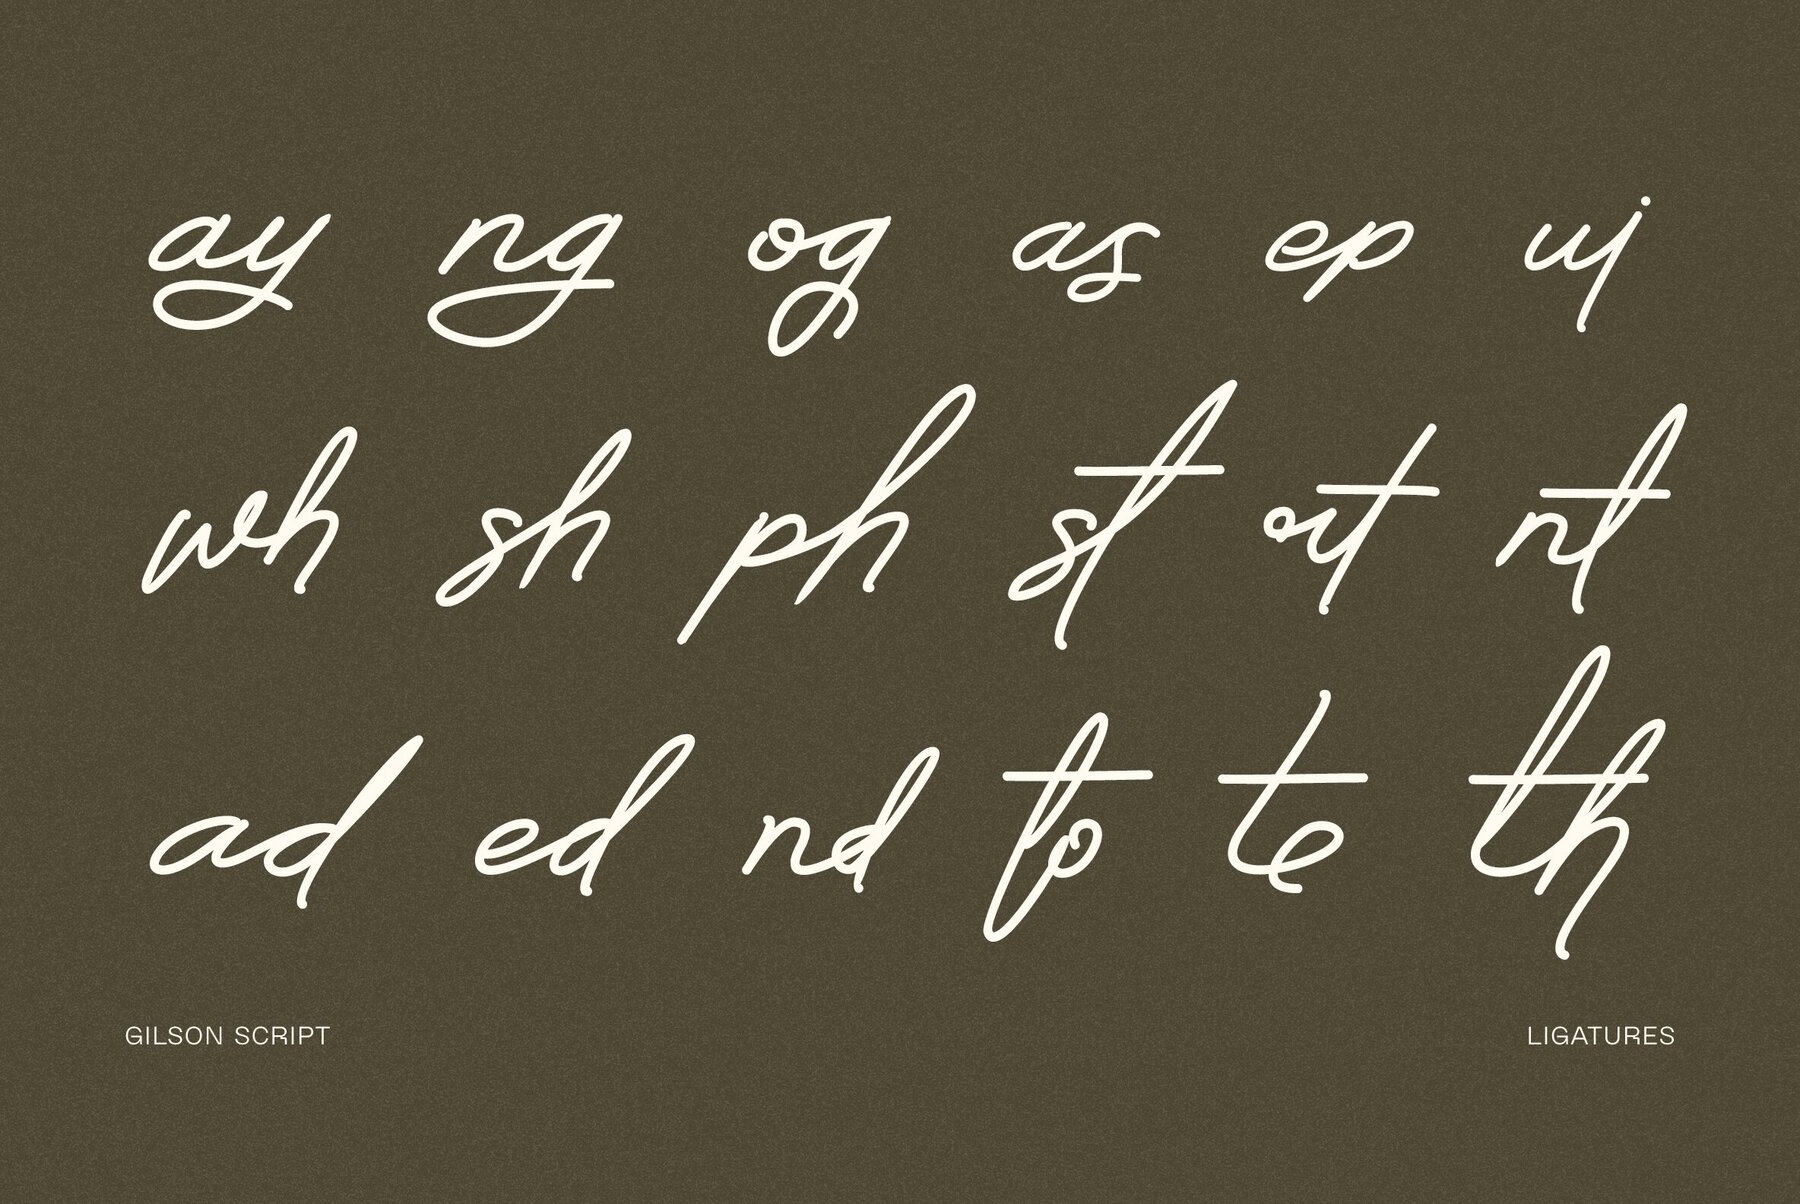 ay ng og as ep uj
wh sh ph st out nt
ad ed nd to te th
GILSON SCRIPT
LIGATURES